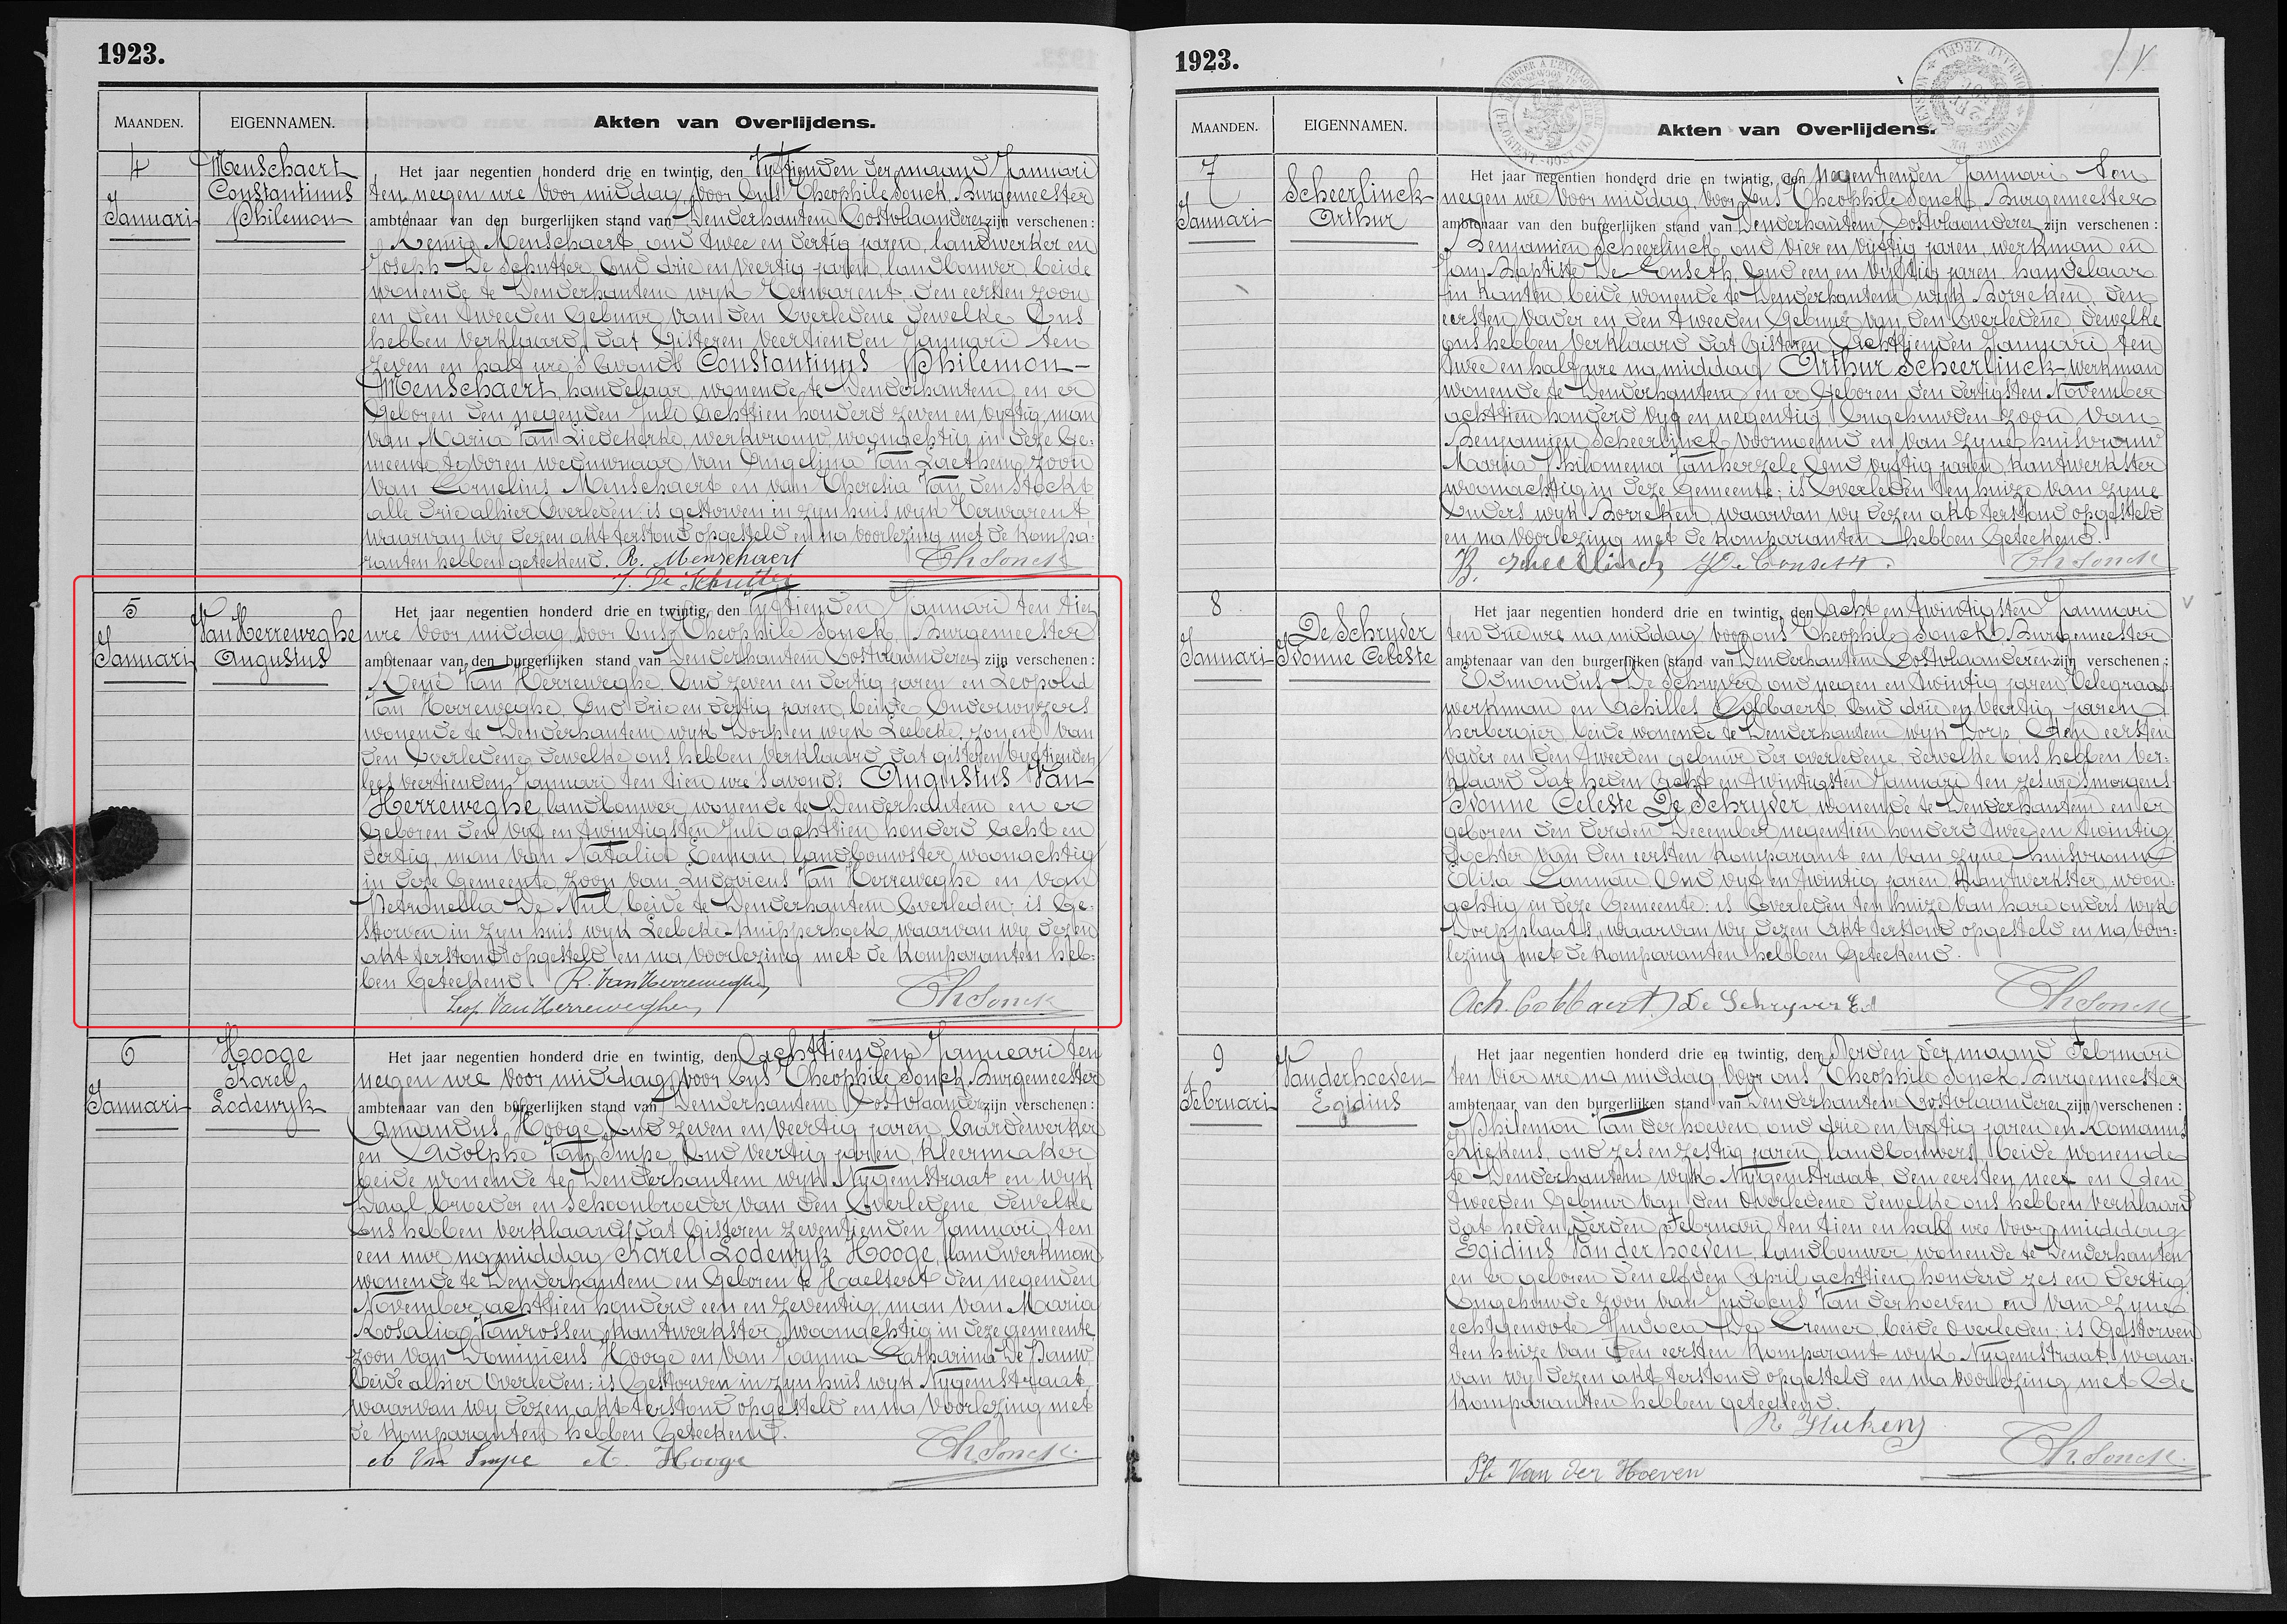 1923.
MAANDEN.
EIGENNAMEN.
Akten van Overlijdens.
4
Januari
Menschaert
Constantinus
Philemon
Het jaar negentien honderd drie en twintig, den Vyftienden der maand Januari
ten negen ure voor middag, voor Ons Theophile Sonck, Burgemeester
ambtenaar van den burgerlijken stand van Denderhautem Oostvlaanderen zijn verschenen:
Remig Menschaert, oud twee en dertig jaren, landwerker en
Joseph De Schutter, Oud drie en veertig jaren, landbouwer, beide
wonende te Denderhautem wyk Terwarent, den eersten zoon
en den tweeden Gebuur van den Overledene dewelke Ons
hebben verklaard dat Gisteren veertienden Januari ten
zeven en half ure 's avonds Constantinus Philemon-
Menschaert, handelaar, wonende te Denderhautem, en er
Geboren den negenden Juli achttien honderd zeven en vyftig, man
van Maria Van Liedekerke, werkvrouw, woonachtig in deze Ge-
meente, te voren weduwnaar van Angelina Van Laethem, zoon
van Cornelius Menschaert en van Theresia Van den Stockt
alle drie alhier Overleden; is gestorven in zyn huis wyk Terwarent,
waarvan wy dezen akt terstond opgesteld en na voorlezing met de kompa-
ranten hebben geteekend. R. Menschaert
J. De Schutter
Th Sonck
5
Januari
Van Herreweghe
Augustus
Het jaar negentien honderd drie en twintig, den Vyftienden Januari ten tien
ure voor middag, voor Ons Theophile Sonck, Burgemeester
ambtenaar van den burgerlijken stand van Denderhautem Oostvlaanderen zijn verschenen:
René Van Herreweghe, Oud zeven en dertig jaren en Leopold
Van Herreweghe, Oud drie en dertig jaren, beide Onderwyzers
wonende te Denderhautem wyk Dorp en wyk Leebeke, zonen van
den Overledene dewelke ons hebben verklaard dat gisteren vyftienden
lees veertienden Januari ten tien ure 's avonds Augustus Van
Herreweghe, landbouwer, wonende te Denderhautem en er
Geboren den vyf en twintigsten Juli achttien honderd acht en
dertig, man van Natalia Eeman, landbouwster, woonachtig
in deze Gemeente, zoon van Ludovicus Van Herreweghe en van
Petronella De Nul, beide te Denderhautem Overleden; is Ge-
storven in zyn huis wyk Leebeke-Knipperhoek, waarvan wy dezen
akt terstond opgesteld en na voorlezing met de Komparanten heb-
ben Geteekend R. Van Herreweghe
Leop. Van Herreweghe
Th Sonck
6
Januari
Hooge
Karel
Lodewyk
Het jaar negentien honderd drie en twintig, den Achttienden Januari ten
negen ure voor middag, voor Ons Theophile Sonck, Burgemeester
ambtenaar van den burgerlijken stand van Denderhautem Oostvlaanderen zijn verschenen:
Amandus Hooge, Oud zeven en veertig jaren, Aardewerker
en Adolphe Van Impe, Oud veertig jaren, Kleermaker
beide wonende te Denderhautem wyk Nygemstraat en wyk
Daal, broeder en Schoonbroeder van den Overledene dewelke
Ons hebben verklaard dat Gisteren zeventienden Januari ten
een uur namiddag Karel Lodewyk Hooge, landwerkman
wonende te Denderhautem en Geboren te Haeltert den negenden
November achttien honderd een en zeventig, man van Maria
Rosalia Vanrossen, Kantwerkster, woonachtig in deze gemeente,
zoon van Dominicus Hooge en van Joanna Catharina De Pauw
beide alhier Overleden; is Gestorven in zyn huis wyk Nygemstraat,
waarvan wy dezen akt terstond opgesteld en na voorlezing met
de Komparanten hebben Geteekend.
A Van Impe A. Hooge
Th Sonck
1923.
MAANDEN.
EIGENNAMEN.
Akten van Overlijdens.
7
Januari
Scheerlinck
Arthur
Het jaar negentien honderd drie en twintig, den negentienden Januari ten
negen ure voor middag, voor Ons Theophile Sonck, Burgemeester
ambtenaar van den burgerlijken stand van Denderhautem, Oostvlaanderen zijn verschenen:
Benjamien Scheerlinck, oud vier en vyftig jaren, werkman en
Jan Baptiste De Conseth, Oud een en vyftig jaren, handelaar
in Kanten, beide wonende te Denderhautem wyk Borreken, den
eersten vader en den tweeden Gebuur van den Overledene dewelke
ons hebben verklaard dat Gisteren Achttienden Januari ten
twee en half ure na middag Arthur Scheerlinck, werkman
wonende te Denderhautem en er Geboren den dertigsten November
achttien honderd vyf en negentig, Ongehuwden zoon van
Benjamien Scheerlinck voornoemd en van zyne huisvrouw
Maria Philomena Vanherzele, Oud vyftig jaren, Kantwerkster
woonachtig in deze Gemeente; is Overleden ten huize van zyne
Ouders wyk Borreken, waarvan wy dezen akt terstond opgesteld
en na voorlezing met de Komparanten hebben Geteekend.
B. Scheerlinck J De Conseth.
Th Sonck
8
Januari
De Schryver
Ivonne Celeste
Het jaar negentien honderd drie en twintig, den Acht en twintigsten Januari
ten drie ure na middag, voor ons Theophile Sonck, Burgemeester
ambtenaar van den burgerlijken stand van Denderhautem, Oostvlaanderen zijn verschenen:
Edmondus De Schryver, oud negen en twintig jaren, Telegraaf-
werkman en Achilles Cobbaert, Oud drie en veertig jaren,
herbergier, beide wonende te Denderhautem wyk Dorp, den eersten
vader en den tweeden gebuur der overledene, dewelke ons hebben ver-
klaard dat heden Acht en twintigsten Januari ten zes ure 's morgens
Ivonne Celeste De Schryver, wonende te Denderhautem en er
geboren den derden December negentien honderd twee en twintig,
Dochter van den eersten Komparant en van zyne huisvrouw
Elisa Camman, Oud vyf en twintig jaren, Kantwerkster, woon-
achtig in deze Gemeente; is Overleden ten huize van hare ouders wyk
Dorpplaats, waarvan wy dezen Akt terstond opgesteld en na voor-
lezing met de Komparanten hebben Geteekend.
Ach. Cobbaert De Schryver Ed
Th Sonck
9
Februari
Vanderhoeven
Egidius
Het jaar negentien honderd drie en twintig, den Derden der maand Februari
ten vier ure na middag, voor ons Theophile Sonck, Burgemeester
ambtenaar van den burgerlijken stand van Denderhautem, Oostvlaanderen zijn verschenen:
Philemon Van der hoeven, oud drie en vyftig jaren en Romanus
oud zes en zestig jaren, landbouwers, beide wonende
te Denderhautem wyk Nygemstraat, den eersten neef en den
tweeden Gebuur van den Overledene dewelke ons hebben verklaard
dat heden derden Februari ten tien en half ure voormiddag
Egidius Van der hoeven, landbouwer, wonende te Denderhautem
en er geboren den elfden April achttien honderd zes en dertig,
Ongehuwde zoon van Judocus Van der hoeven en van zyne
echtgenoote Judoca De Cremer, beide overleden; is Gestorven
ten huize van den eersten Komparant wyk Nygemstraat, waar-
van wy dezen akt terstond opgesteld en na voorlezing met de
Komparanten hebben geteekend.
Ph Van der Hoeven
Th Sonck